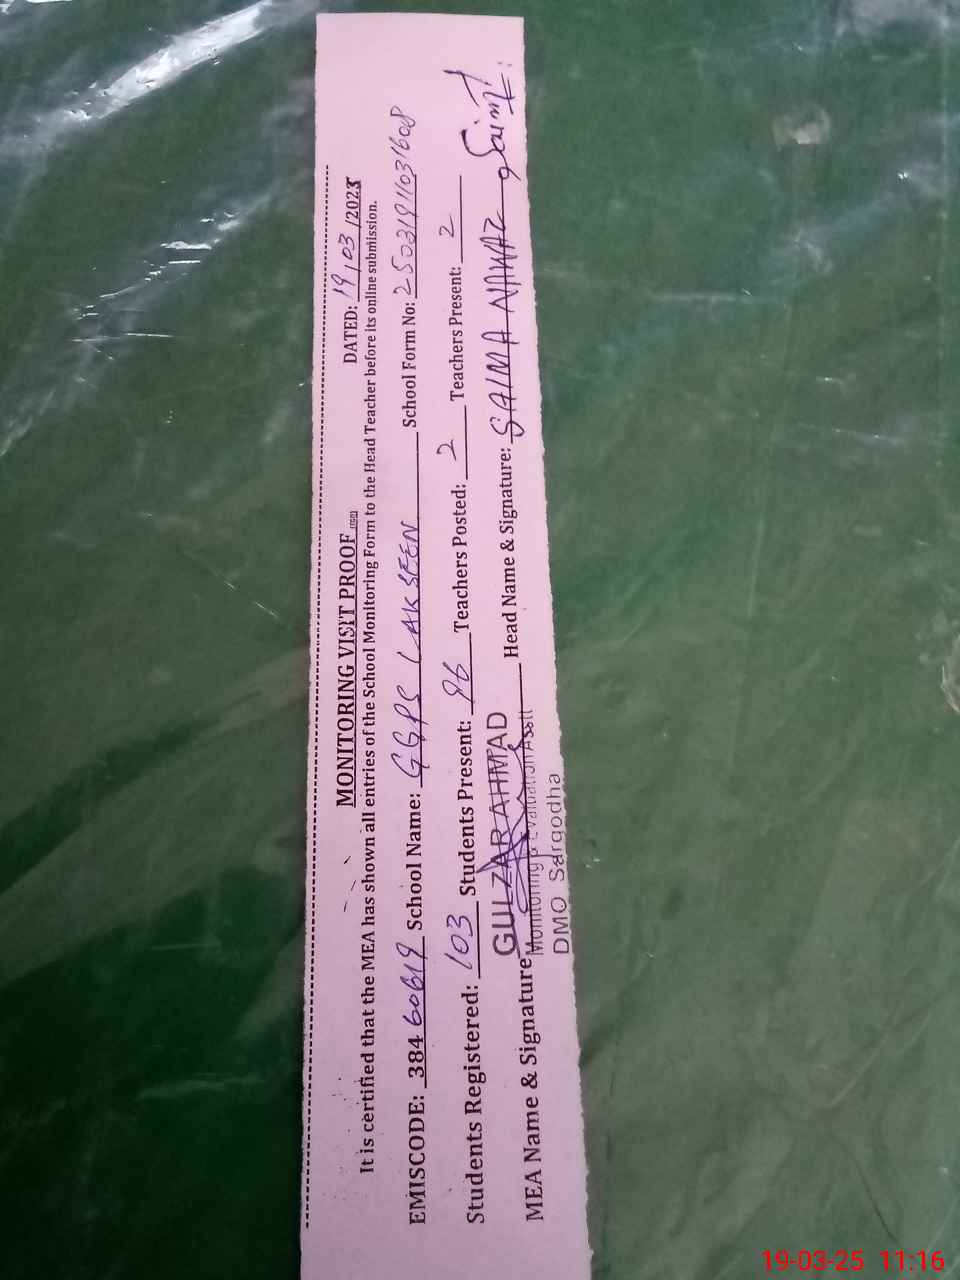 MONITORING VISIT PROOF DATED: 19/03/2025
It is certified that the MEA has shown all entries of the School Monitoring Form to the Head Teacher before its online submission.
EMISCODE: 384 60619 School Name: GGPS LAKSEEN School Form No: 2503191031608
Students Registered: 103 Students Present: 96 Teachers Posted: 2 Teachers Present: 2
MEA Name & Signature GULZAR AHMAD Head Name & Signature: SAIMA NAWAZ Saima
Monitoring & Evaluation Asstt
DMO Sargodha
19-03-25 11:16